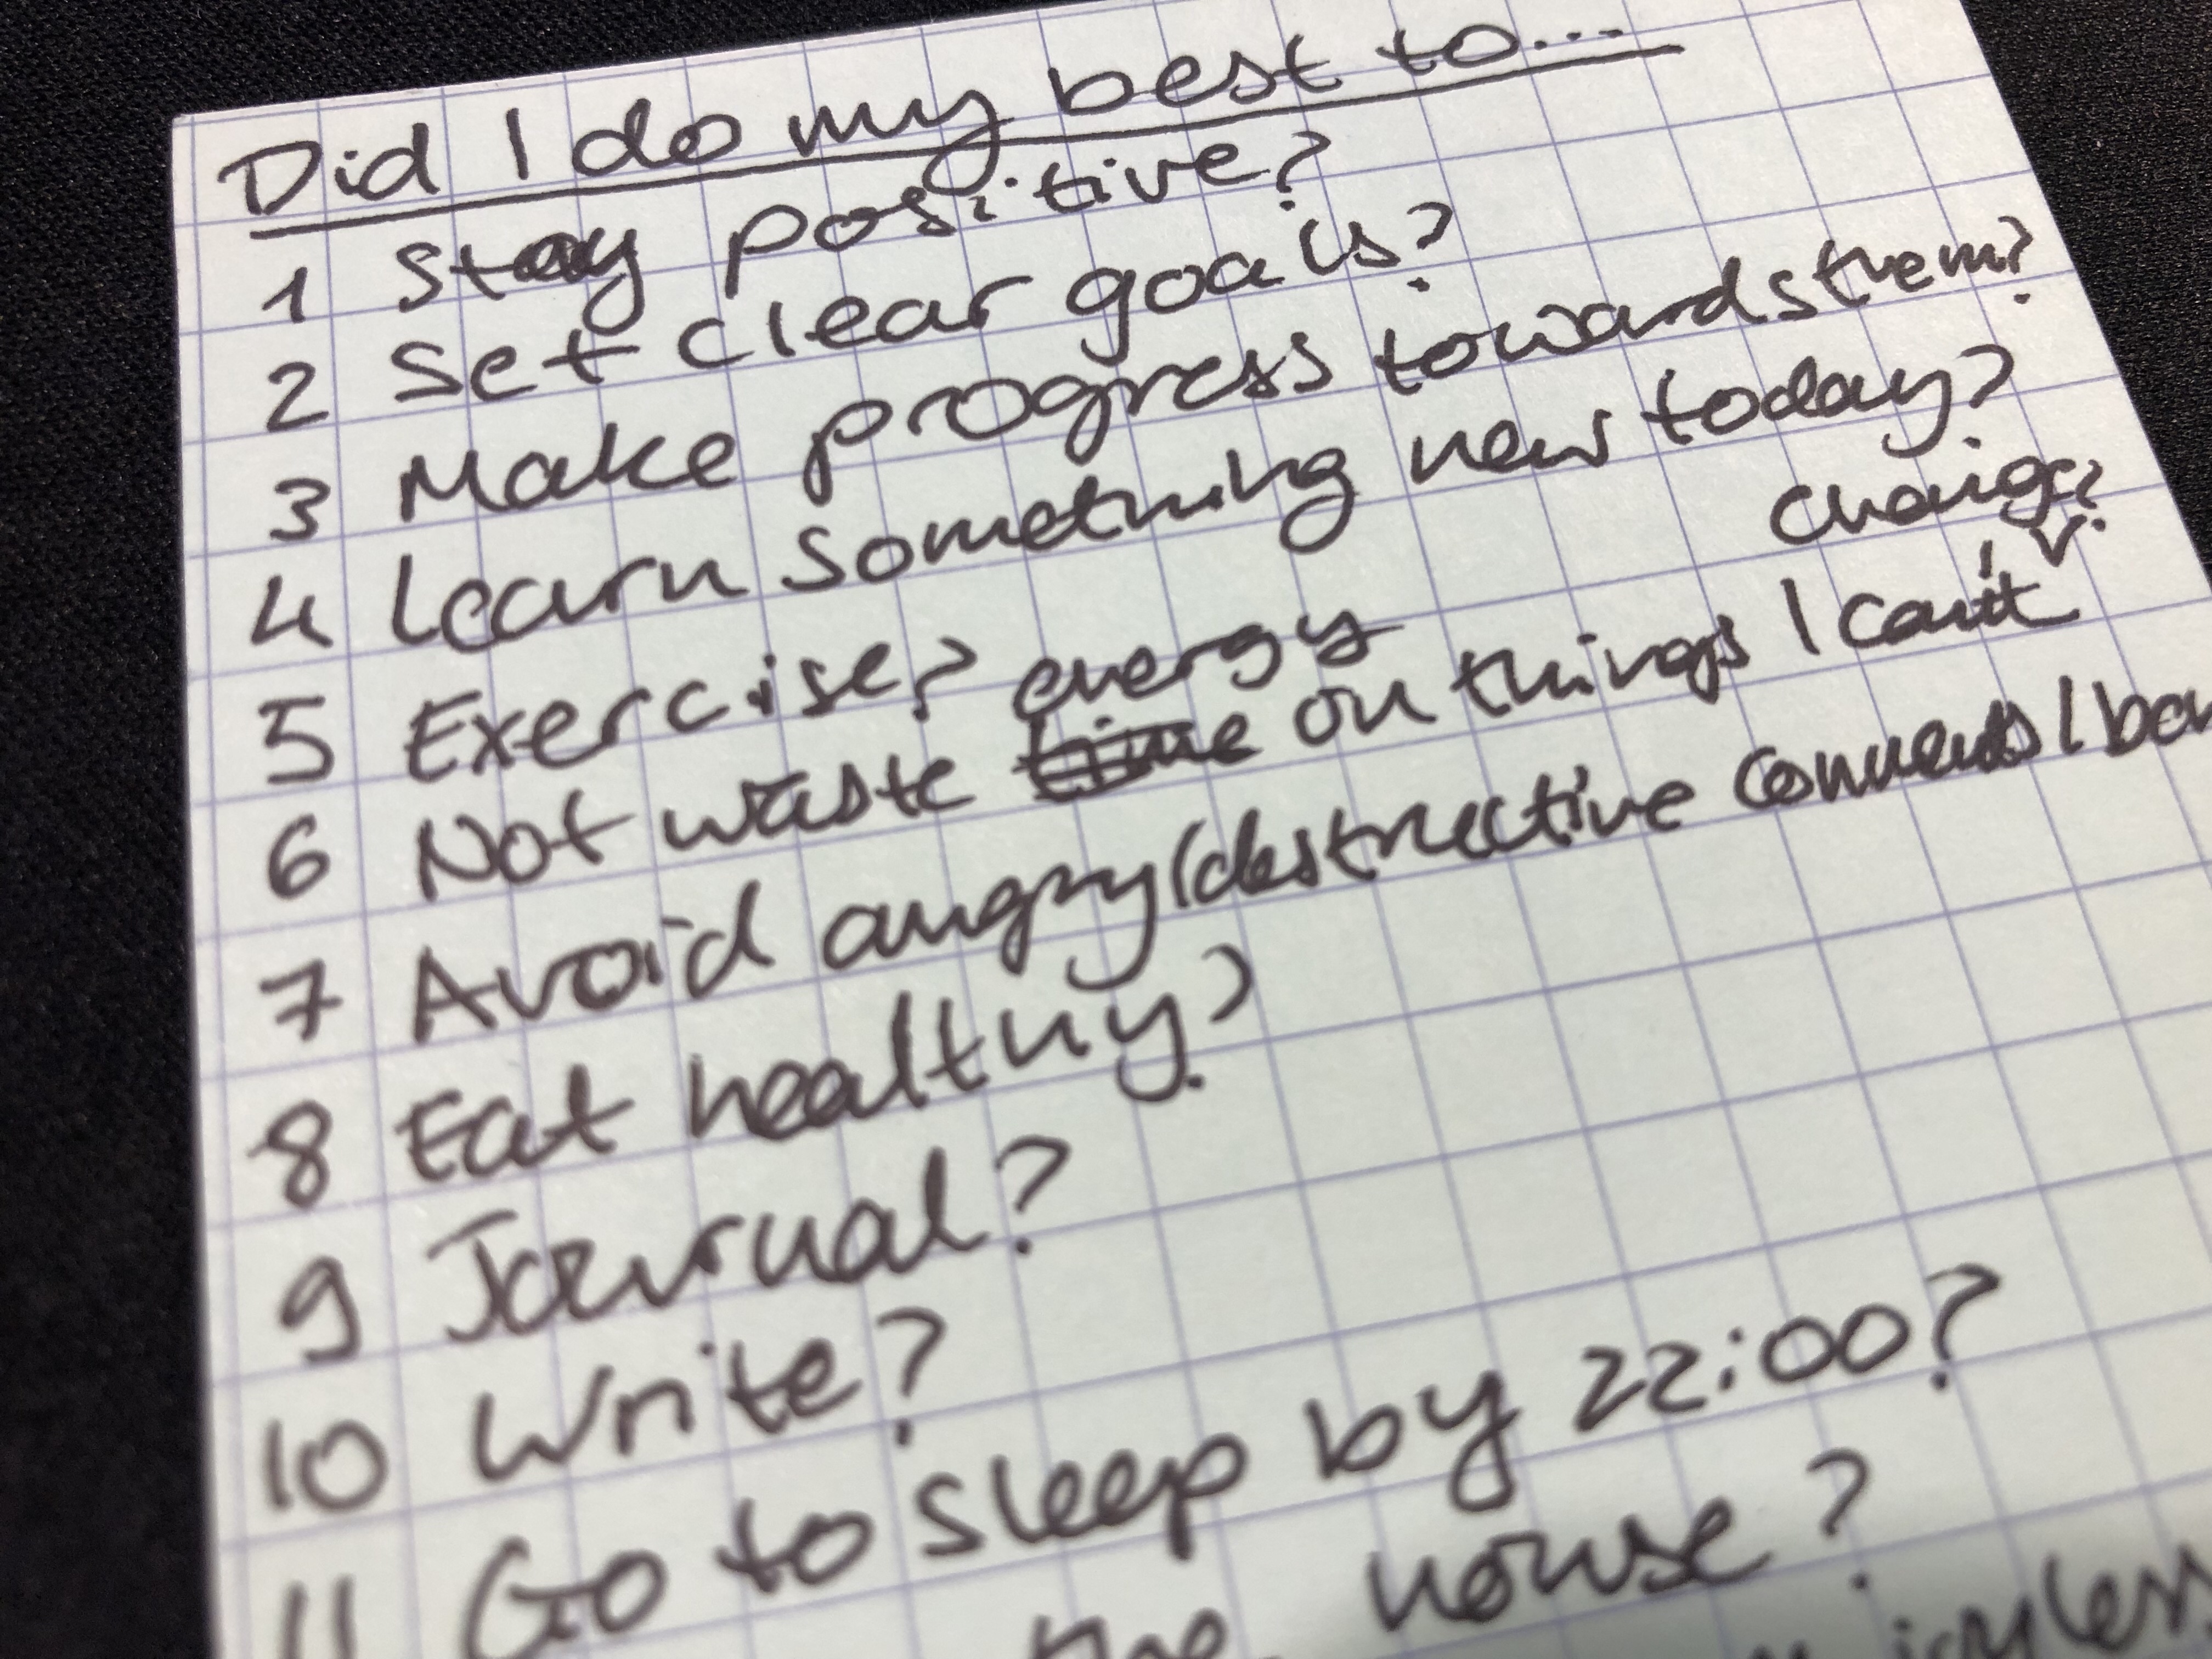 Did I do my best to...
1 Stay positive?
2 Set clear goals?
3 Make progress towards them?
4 Learn something new today?
5 Exercise?
change?
energy
6 Not waste time on things I can't
7 Avoid angry/destructive comments I
8 Eat healthy?
9 Journal?
10 Write?
11 Go to sleep by 22:00?
the house?